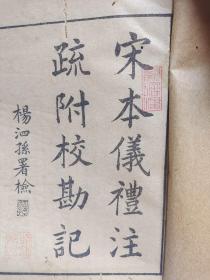 宋本儀禮注
疏附校勘記
楊泗孫署檢